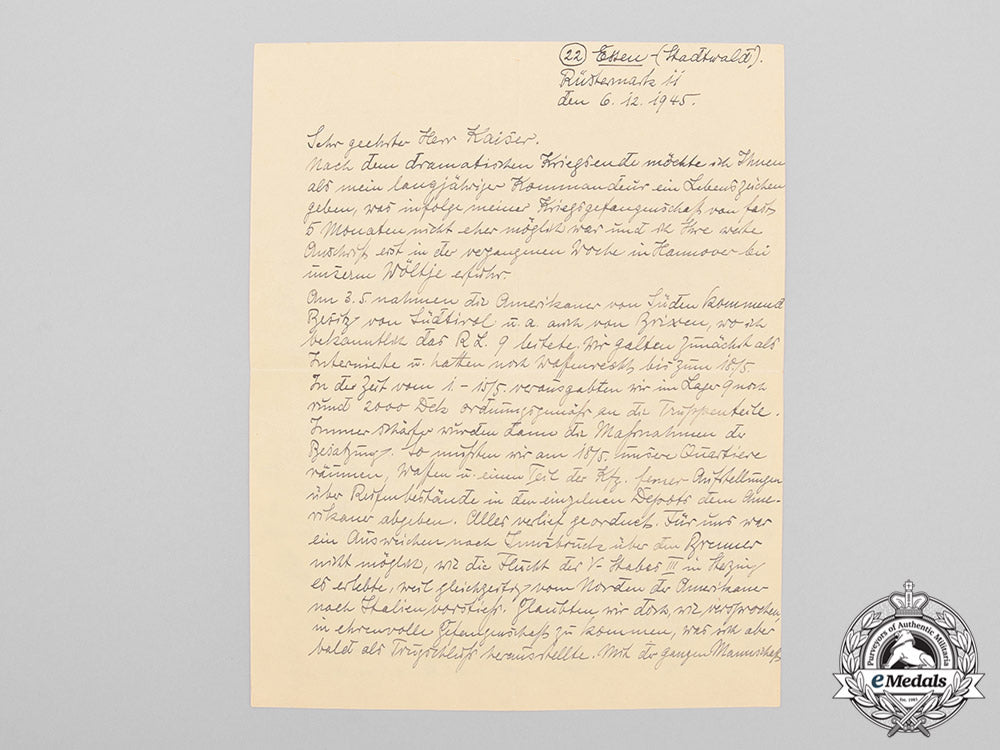 (22) Essen-(Stadtwald).
Rüstermark 11
den 6.12.1945.
Sehr geehrter Herr Kaiser.
Nach dem dramatischen Kriegsende möchte ich Ihnen
als mein langjähriger Kommandeur ein Lebenszeichen
geben, was infolge meiner Kriegsgefangenschaft von fast
5 Monaten nicht eher möglich war und ich Ihre werte
Anschrift erst in der vergangenen Woche in Hannover bei
unserm Wöltje erfuhr.
Am 3.5. nahmen die Amerikaner von Süden kommend
Besitz von Südtirol u. a. auch von Brixen, wo ich
bekanntlich das R.L. 9 leitete. Wir galten zunächst als
Internierte u. hatten noch Waffenrecht bis zum 18/5.
In der Zeit vom 1-15/5. verausgabten wir im Lager 9 noch
rund 2000 Dek ordnungsgemäß an die Truppenteile.
Immer schärfer wurden dann die Maßnahmen der
Besatzung. So mußten wir am 18/5. unsere Quartiere
räumen, Waffen u. einen Teil der Kfz. ferner Aufstellungen
über Reifenbestände in den einzelnen Depots dem Ame-
rikaner abgeben. Alles verlief geordnet. Für uns war
ein Ausweichen nach Innsbruck über den Brenner
nicht möglich, wie die Flucht des V-Stabes III in Sterzing
es erlebte, weil gleichzeitig vom Norden der Amerikaner
nach Italien vorstieß. Glaubten wir doch, wie versprochen,
in ehrenvolle Gefangenschaft zu kommen, was sich aber
bald als Trugschluß herausstellte. Mit der ganzen Mannschaft
Purveyors of Authentic Militaria
eMedals
Est. 1993